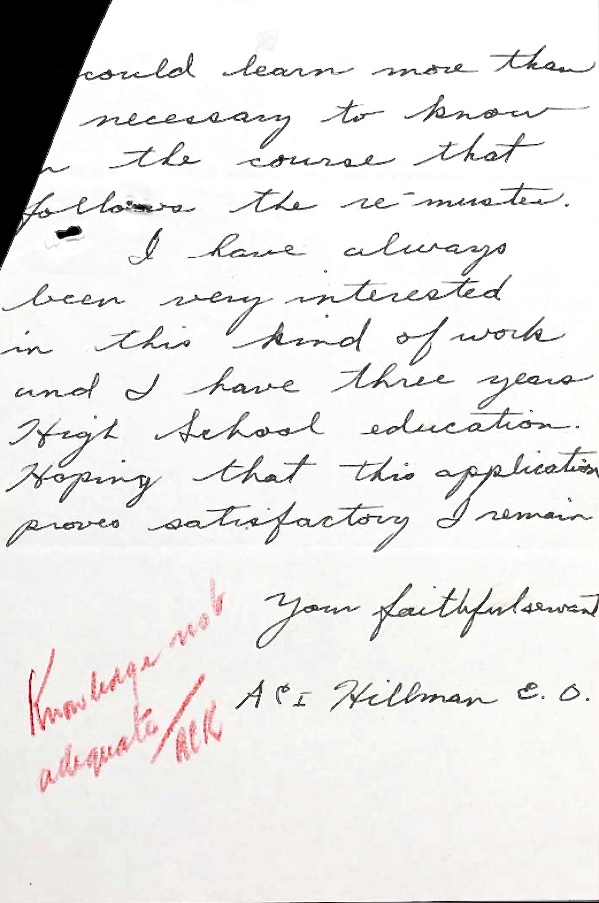 could learn more than
necessary to know
n the course that
follows the re-muster.
I have always
been very interested
in this kind of work
and I have three years
High School education.
Hoping that this application
proves satisfactory I remain
Your faithful servant
AC1 Hillman E. O.
Knowledge not
adequate